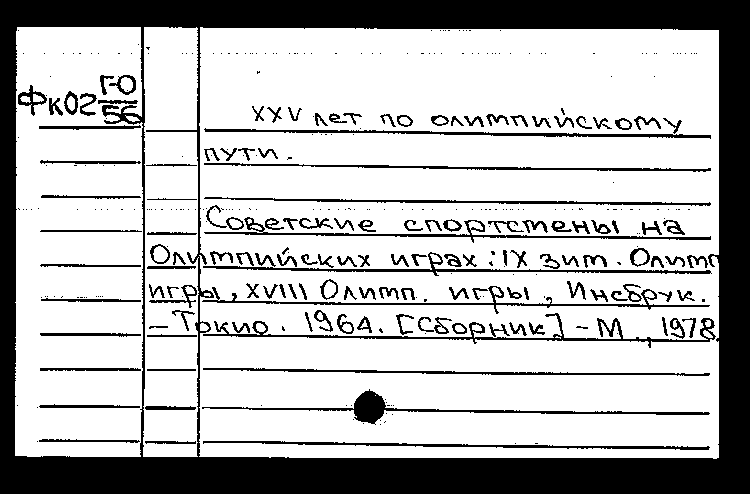 Фк02 ГО/56
XXV лет по олимпийскому
пути.
Советские спортстены на
Олимпийских играх: IX зим. Олимп
игры, XVIII Олимп. игры, Инсбрук.
– Токио. 1964. [Сборник] – М., 1978.